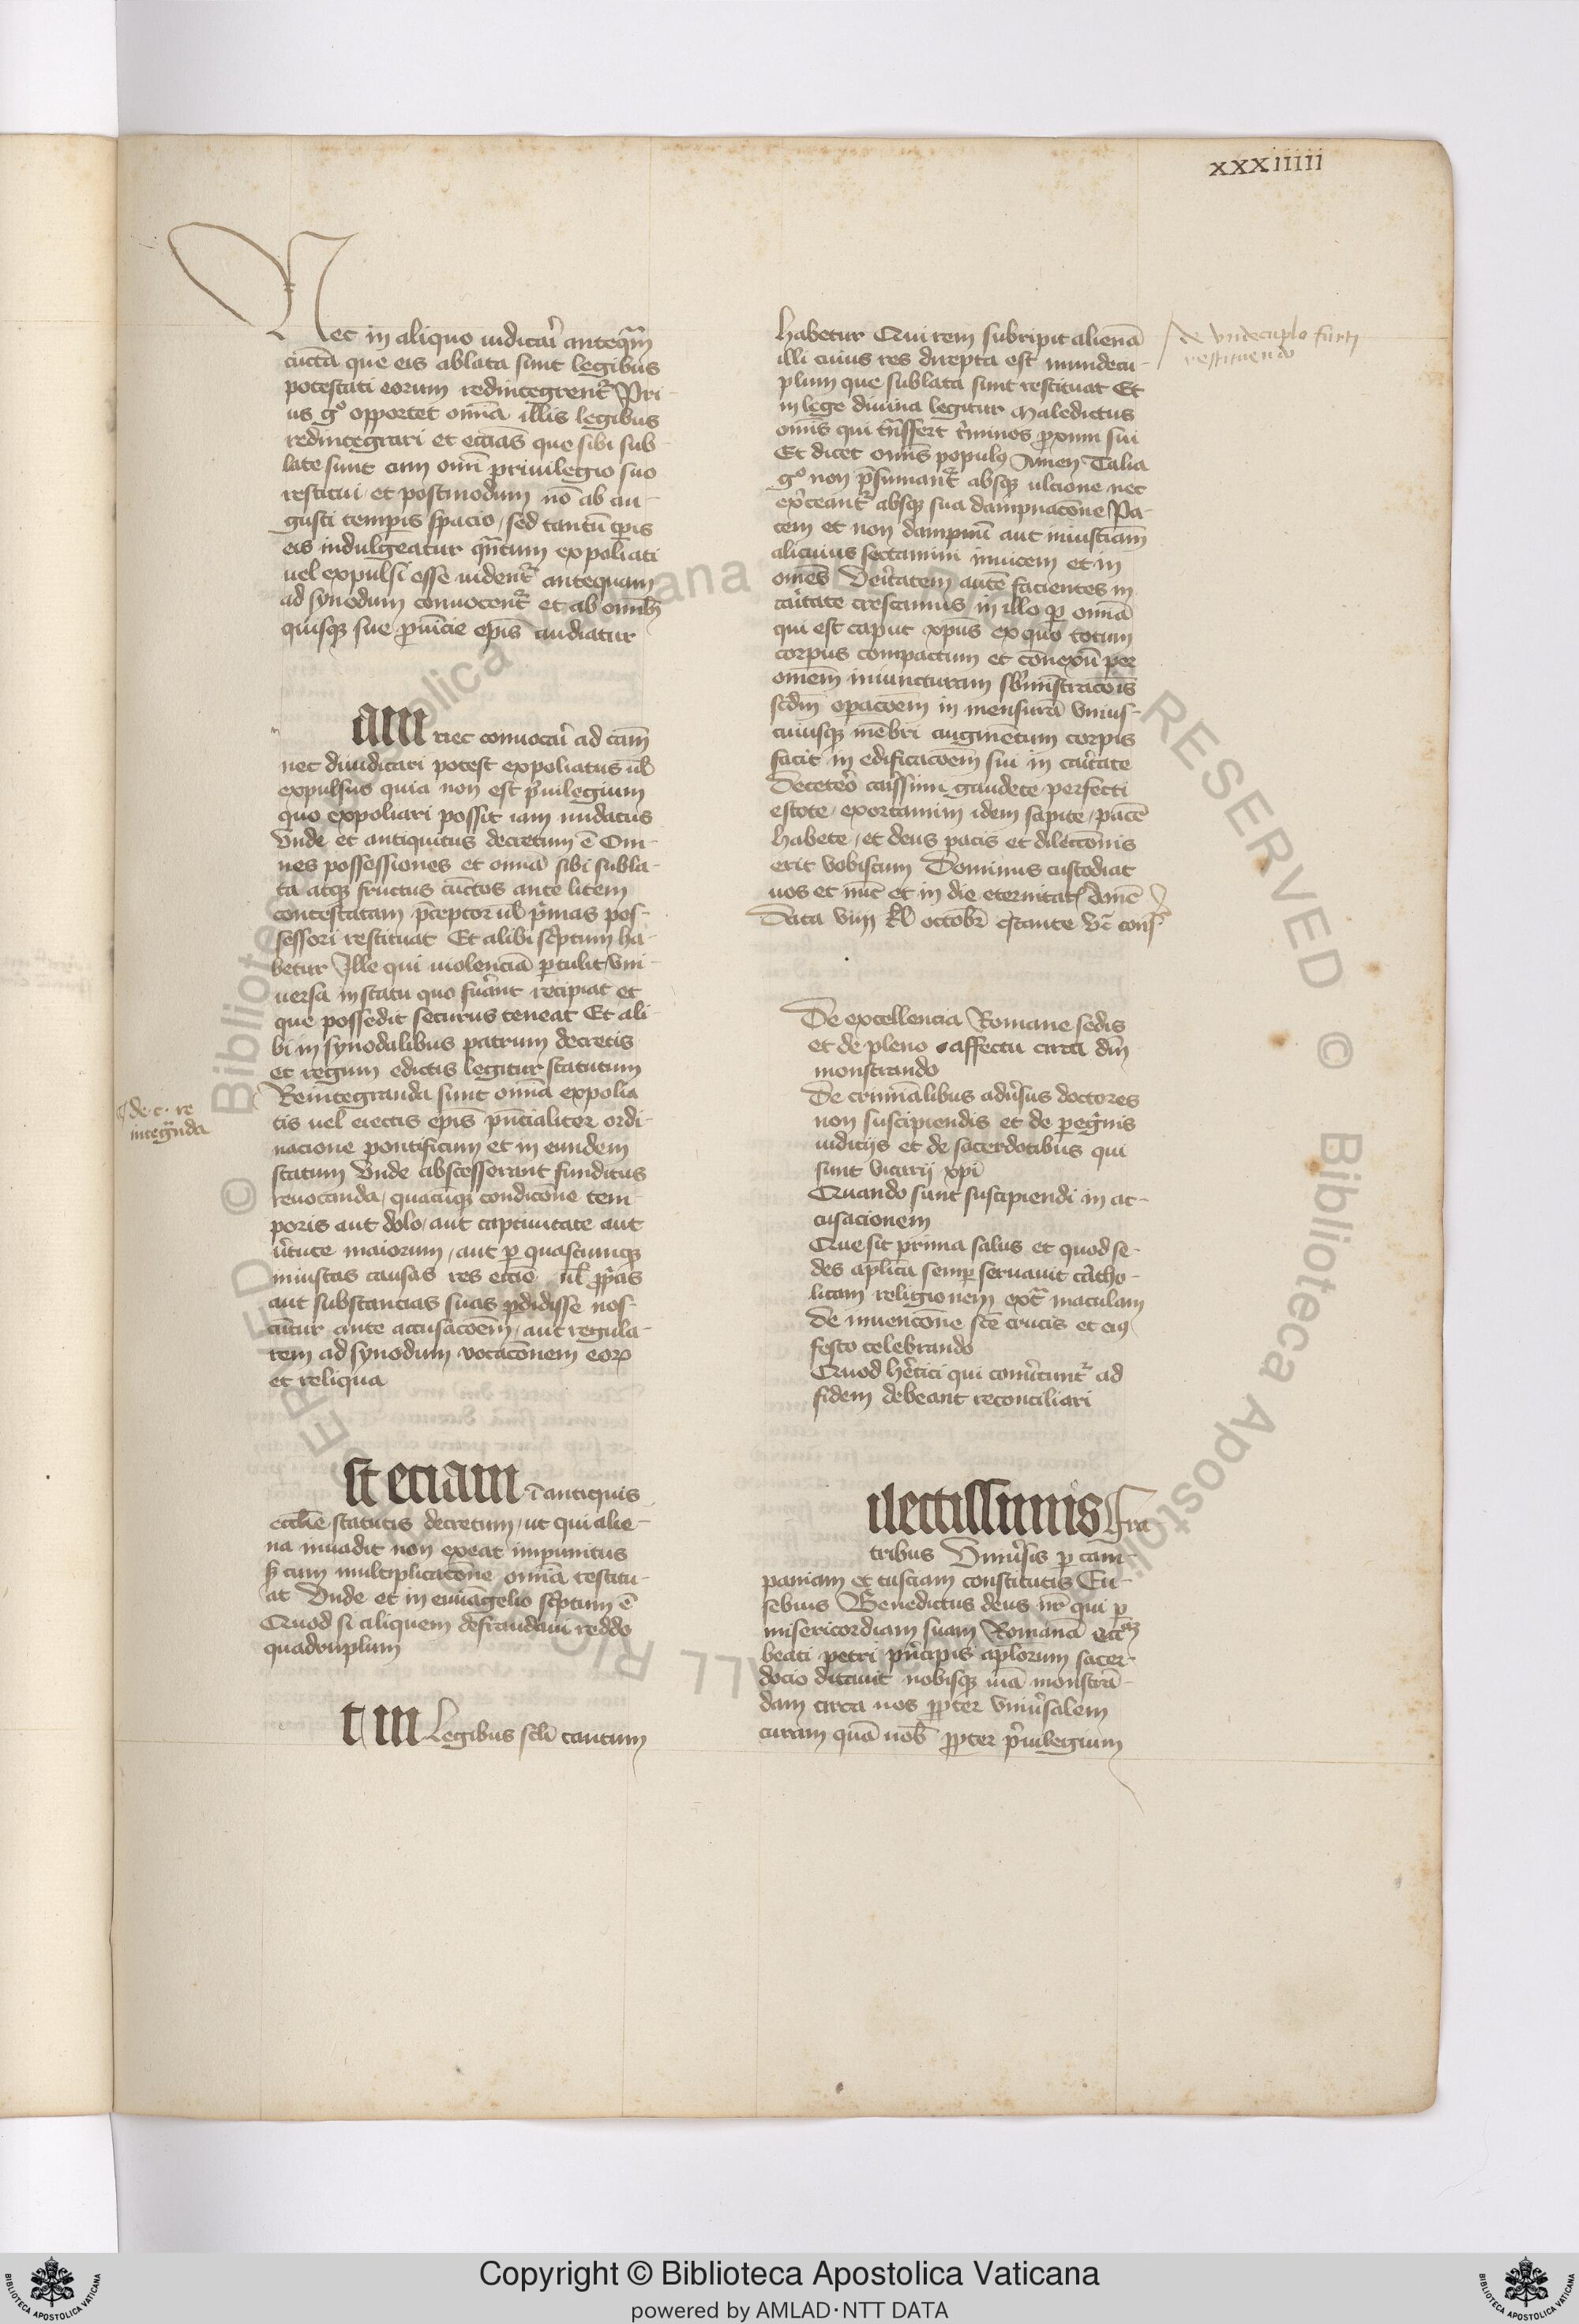 xxxiiiii
Nec in aliquo iudicari antequā
cūcta que eis ablata sunt legibus
potestati eorum redintegrent᷑ Pri-
us gº opportet om̄ia illis legibus
redintegrari et ecc̄ias que sibi sub
late sunt cum om̄i priuilegio suo
restitui / et postmodum nō ab an-
gusti tempis spacio / sed tantū tp̄is
eis indulgeatur qn̄tum expoliati
uel expulsi esse uident᷑ antequam
ad synodum conuocent᷑ et ab om̄ibȝ
quisqȝ sue puīcie ep̄is audiatur
am nec conuocari ad cām
nec diiudicari potest expoliatus ul̄
expulsus quia non est pͥuilegium
quo expoliari possit iam nudatus
Vnde et antiquitus decretum ē Om-
nes possessiones et om̄ia sibi subla-
ta atqȝ fructus cūctos ante litem
contestatam p̄ceptor ul̄ pͥmas pos-
sessori restituat Et alibi scͥptum ha-
betur Ille qui uiolenciā ptulit / vni-
uersa in statu quo fuānt recipiat et
que possedit securus teneat Et ali-
bi in synodalibus patrum decretis
et regum edictis legitur statutum
Reintegranda sunt om̄ia expolia
tis uel eiectis ep̄is pn̄cialiter ordi-
nacione pontificum et in eundem
statum Vnde abscesserant funditus
reuocanda / quacūqȝ condicōne tem-
poris aut dolo / aut captiuitate aut
uͥtute maiorum / aut p quascumqȝ
iniustas causas res ecc̄ie ul̄ ppͥas
aut substancias suas pdidisse nos-
cūtur ante accusacōem / aut regula-
rem ad synodum vocacōnem eoꝝ
et reliqua
de c. re
integrn̄da
st eciam ī antiquis
ecc̄lie statutis decretum / ut qui alie-
na inuadit non exeat impunitus
sȝ cum multiplicacōne om̄ia restitu-
at Vnde et in euuāgelio scͥptum ē
Quod si aliquem defraudaui reddo
quadruplum
t in Legibus sc̄li cautum
habetur Qui rem subripit alienā
illi cuius res direpta est inundecu-
plum que sublata sunt restituat Et
in lege diuina legitur Maledictus
om̄is qui tn̄sfert tͥminos pximi sui
Et dicet om̄is populꝰ Amen Talia
gº non p̄sumant᷑ absqȝ ulcione nec
exͥceant᷑ absqȝ sua dampnacōne Pa-
cem et non dampnū aut iniusticiam
alicuius sectamini inuicem et in
om̄es Veritatem autē facientes in
caritate crescamus in illo p om̄ia
qui est caput xp̄us ex quo totum
corpus compactum et cōnexū per
om̄em iniuncturam sbm̄istracōis
scd̄m opacōem in mensurā vnius-
cuiusqȝ mēbri augmētum corpis
facit in edificacōem sui in caͥtate
Decetero caͥssimi gaudete / perfecti
estote / exortamini idem sapite / pacē
habete / et deus pacis et dilectōnis
erit vobiscum Dominus custodiat
uos et nūc et in die eternitatꝭ donec
Data viiij kl̄ octobr̄ Constante v̄c cons
de vndecuplo furti
restituendo
De excellencia Romane sedis
et de pleno affectu circa dm̄
monstrando
De criminalibus aduͥsus doctores
non suscipiendis et de pegͥnis
iudicijs et de sacerdotibus qui
sunt vicarij xpī
Quando sunt suscipiendi in ac-
cusacionem
Que sit prima salus et quod se-
des apl̄ica semp seruauit catho-
licam religionem ext᷑ maculam
De inuencōne sc̄e crucis et eiꝰ
festo celebrando
Quod hētici qui conuͥtunt᷑ ad
fidem debeant reconciliari
ilectissimis Fra
tribus Vniuͥsis p cam-
paniam et tusciam constitutis Eu-
sebius Benedictus deus nr̄ qui p
misericordiam suam Romanā ecc̄iāȝ
beati petri pͥncipis apl̄orum sacer-
docio ditauit nobisqȝ uiā monstrā-
dam circa uos ppter vniuͥsalem
curam quā nob̄ ppter pͥuilegium
Copyright © Biblioteca Apostolica Vaticana
powered by AMLAD·NTT DATA